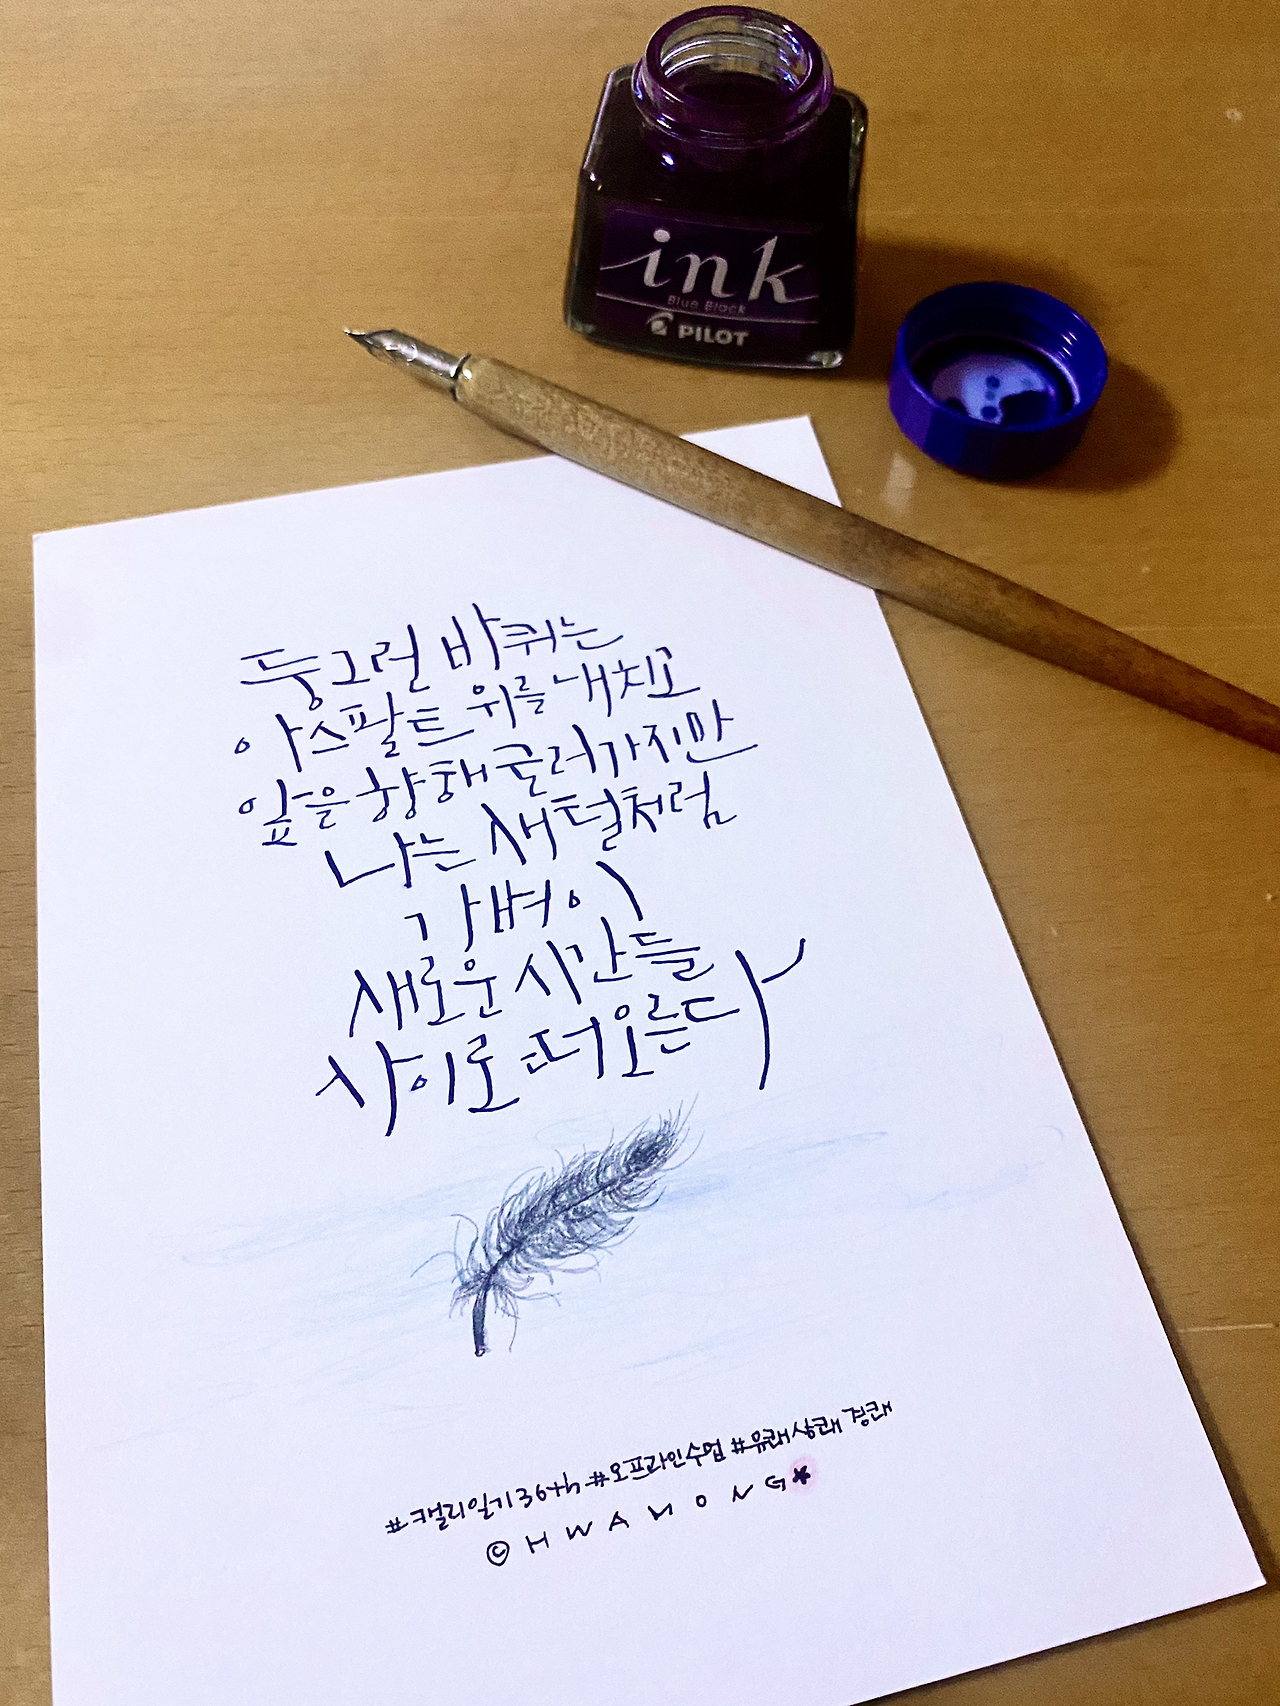 ink
Blue Black
PILOT
둥그런 바퀴는
아스팔트 위를 내치고
앞을 향해 굴러가지만
나는 새털처럼
가벼이
새로운 시간들
사이로 떠오른다
#캘리일기36th #오프라인수업 #유쾌상쾌경쾌
© HWAHONG*